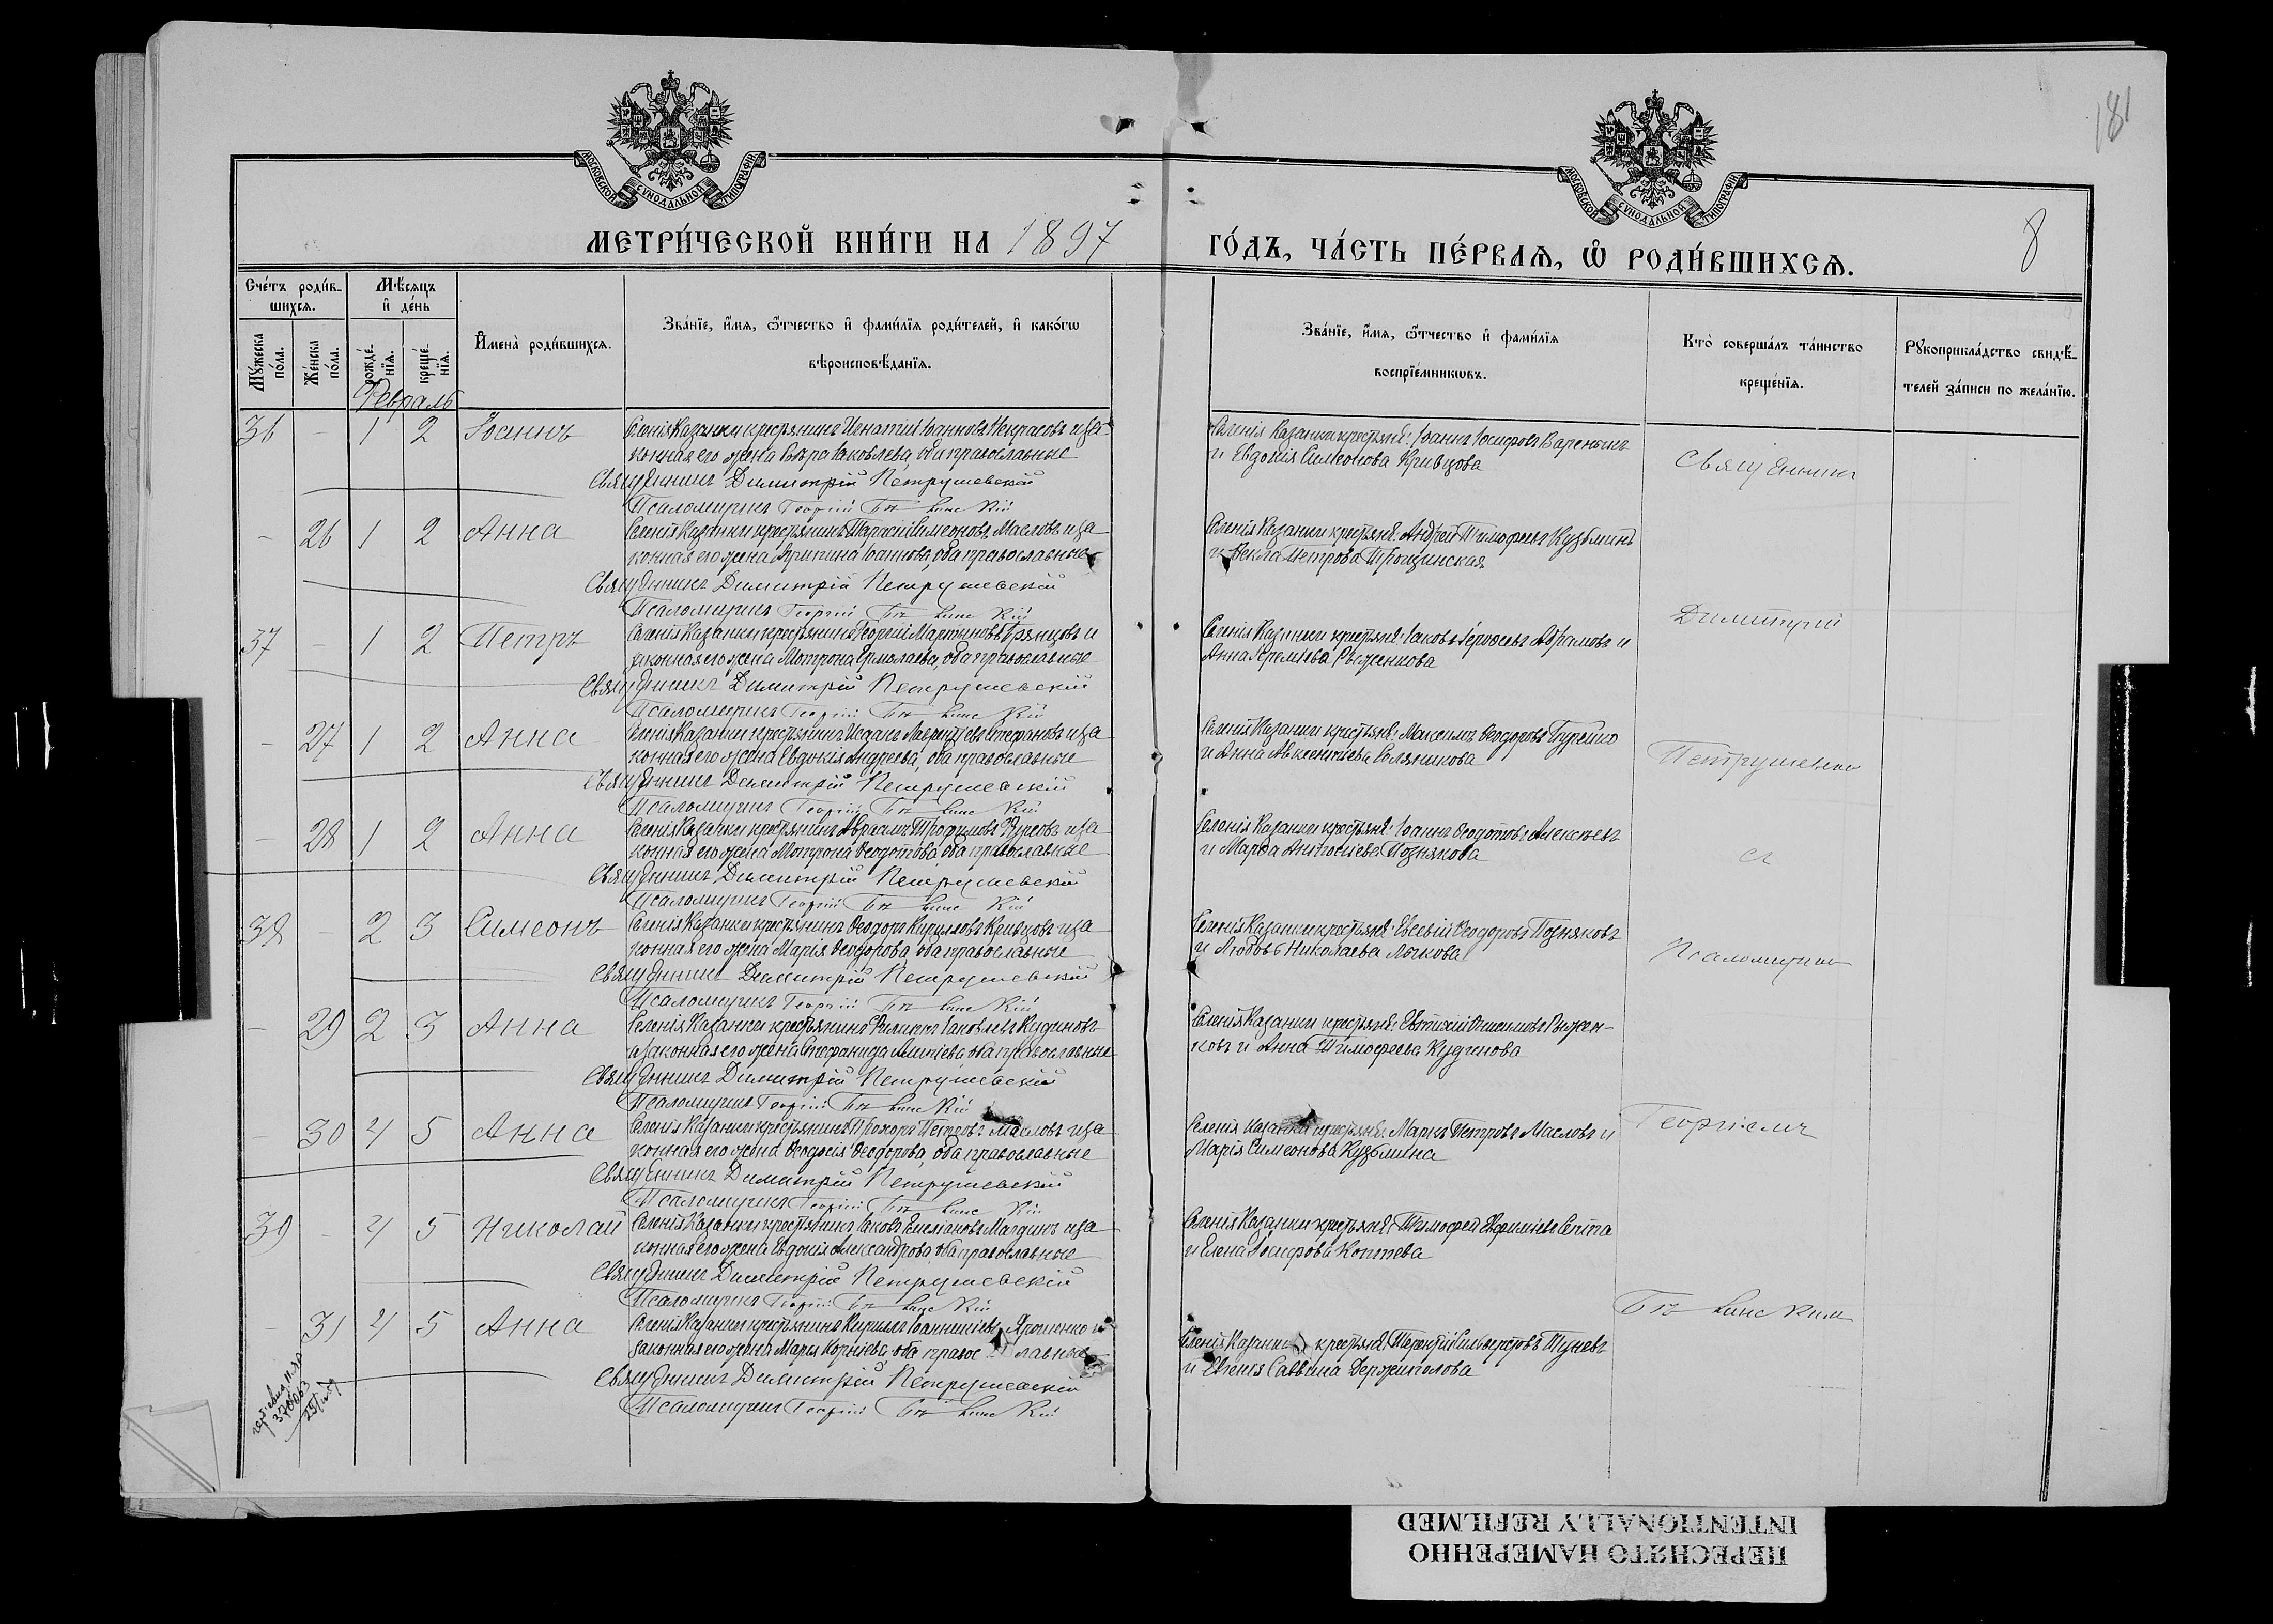 181
МОСКОВСКОЙ СѴНОДАЛЬНОЙ ТИПОГРАФІИ
МОСКОВСКОЙ СѴНОДАЛЬНОЙ ТИПОГРАФІИ
МЕТРИ́ЧЕСКОЙ КНИ́ГИ НА 1897
ГО́ДЪ, ЧА́СТЬ ПЕ́РВАѦ, Ѡ҆ РОДИ́ВШИХСѦ.
8
Сче́тъ роди́в-
шихсѧ.
Мѣ́сѧцъ
и҆ де́нь
Мꙋ́жеска по́ла.
Же́нска по́ла.
рожде́-нїѧ.
креще́-нїѧ.
И҆мена̀ роди́вшихсѧ.
Зва́нїе, и҆́мѧ, ѻ҆́тчество и҆ фами́лїѧ роди́телей, и҆ како́гѡ
вѣроисповѣ́данїѧ.
Зва́нїе, и҆́мѧ, ѻ҆́тчество и҆ фами́лїѧ
воспрїе́мникѡвъ.
Кто̀ соверша́лъ та́инство
креще́нїѧ.
Рꙋкоприкла́дство свидѣ́-
телей за́писи по жела́нїю.
Февраль
36 - 1 2 Іоаннъ Селенія Казанки крестьянинъ Игнатій Іоанновъ Некрасовъ и за-
конная его жена Вѣра Іаковлева, оба православные
Священникъ Димитрій Петрушевскій
Псаломщикъ Георгій
Селенія Казанки крестьяне: Іоаннъ Іосифовъ Вареникъ
и Евдокія Симеонова Кривцова
Священник
- 26 1 2 Анна Селенія Казанки крестьянинъ Тарасій Симеоновъ Масловъ и за-
конная его жена Агрипина Іоаннова, оба православные
Священникъ Димитрій Петрушевскій
Псаломщикъ Георгій
Селенія Казанки крестьяне: Андрей Тимофеевъ Кузьминъ
и Ѳекла Петрова Трощинская
Димитрій
37 - 1 2 Петръ Селенія Казанки крестьянинъ Георгій Мартиновъ Брянцовъ и
законная его жена Мотрона Ермолаева, оба православные
Священникъ Димитрій Петрушевскій
Псаломщикъ Георгій
Селенія Казанки крестьяне: Іаковъ Абрамовъ и
Анна Еремѣева Рыженкова
- 27 1 2 Анна Селенія Казанки крестьянинъ Исаакъ Лаврентьевъ Стефановъ и за-
конная его жена Евдокія Андреева, оба православные
Священникъ Димитрій Петрушевскій
Псаломщикъ Георгій
Селенія Казанки крестьяне: Максимъ Ѳеодоровъ
и Анна Авксентіева Соляникова
Петрушевски
- 28 1 2 Анна Селенія Казанки крестьянинъ Аврамъ Трофимовъ и за-
конная его жена Мотрона Ѳеодотова, оба православные
Священникъ Димитрій Петрушевскій
Псаломщикъ Георгій
Селенія Казанки крестьяне: Іоаннъ Ѳеодотовъ Алексѣевъ
и Марѳа Антоніева Познякова
съ
38 - 2 3 Симеонъ Селенія Казанки крестьянинъ Ѳеодоръ Кирилловъ Кривцовъ и за-
конная его жена Марія Ѳеодорова, оба православные
Священникъ Димитрій Петрушевскій
Псаломщикъ Георгій
Селенія Казанки крестьяне: Евсевій Ѳеодоровъ Позняковъ
и Любовь Николаева Лыкова
Псаломщиком
- 29 2 3 Анна Селенія Казанки крестьянинъ Филиппъ Іаковлевъ Кудиновъ
и законная его жена Стефанида оба православные
Священникъ Димитрій Петрушевскій
Псаломщикъ Георгій
Селенія Казанки крестьяне: Евтихій Онисимовъ Рыжен-
ковъ и Анна Тимофеева Кудинова
- 30 4 5 Анна Селенія Казанки крестьянинъ Прохоръ Петровъ Масловъ и за-
конная его жена Ѳеодосія Ѳеодорова, оба православные
Священникъ Димитрій Петрушевскій
Псаломщикъ Георгій
Селенія Казанки крестьяне: Маркъ Петровъ Масловъ и
Марія Симеонова Кузьмина
Георгіемъ
39 - 4 5 Николай Селенія Казанки крестьянинъ Іаковъ Емеліановъ и за-
конная его жена Евдокія Александрова, оба православные
Священникъ Димитрій Петрушевскій
Псаломщикъ Георгій
Селенія Казанки крестьяне: Тимофей Ефиміевъ
и Елена Іосифова Коптева
- 31 4 5 Анна Селенія Казанки крестьянинъ Кириллъ Іоанникіевъ Ярошенко и
законная его жена Марѳа Корніева оба православные
Священникъ Димитрій Петрушевскій
Псаломщикъ Георгій
Селенія Казанки крестьяне: Терентій Сильверстовъ
и Евгенія Саввина Держиголова
ПЕРЕСНЯТО НАМЕРЕННО
INTENTIONALLY REFILMED